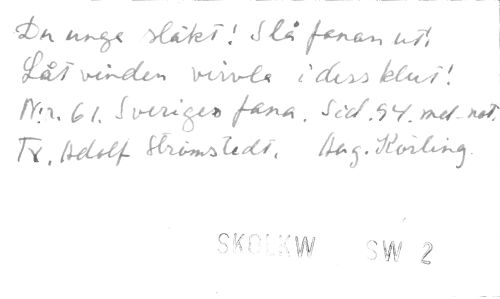 Du unga släkt! Slå fanan ut!
Låt vinden virvla i dess klut!
N:r. 61. Sveriges fana. Sid. 94. mel-not.
Tx. Adolf Strömstedt. Aug. Körling.
SKOLKW SW 2